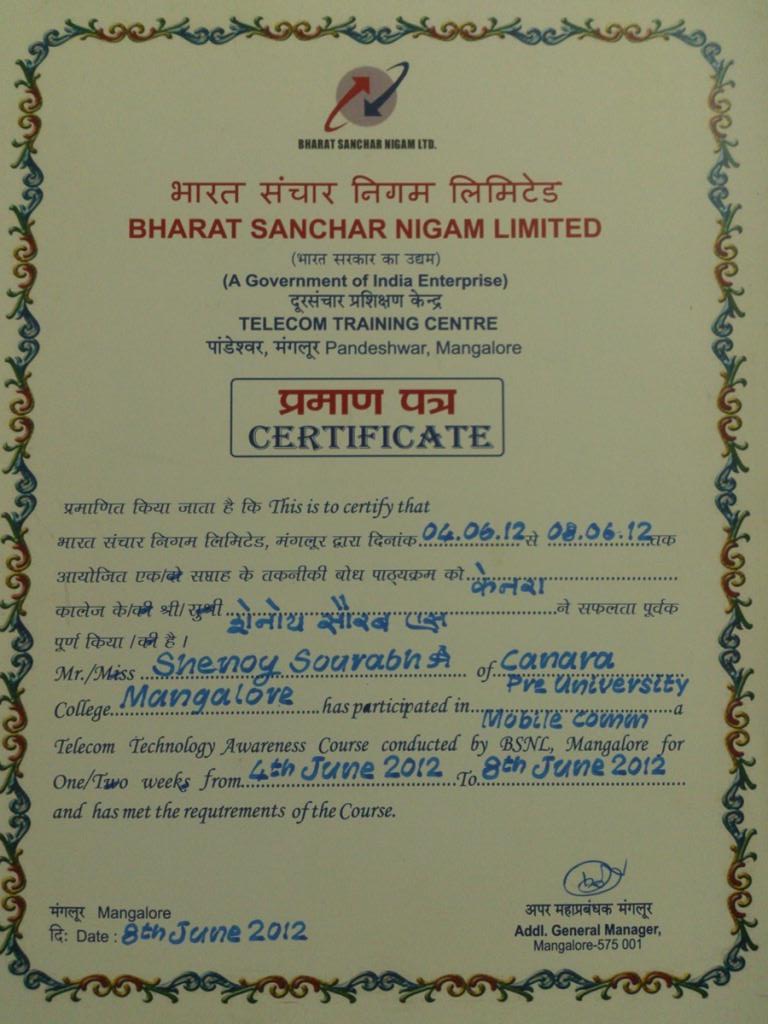 BHARAT SANCHAR NIGAM LTD.
भारत संचार निगम लिमिटेड
BHARAT SANCHAR NIGAM LIMITED
(भारत सरकार का उद्यम)
(A Government of India Enterprise)
दूरसंचार प्रशिक्षण केन्द्र
TELECOM TRAINING CENTRE
पांडेश्वर, मंगलूर Pandeshwar, Mangalore
प्रमाण पत्र
CERTIFICATE
प्रमाणित किया जाता है कि This is to certify that
भारत संचार निगम लिमिटेड, मंगलूर द्वारा दिनांक 04.06.12 से 08.06.12 तक
आयोजित एक/दो सप्ताह के तकनीकी बोध पाठ्यक्रम को केनरा
कालेज के/की श्री/सुश्री शेनोय सौरब एस ने सफलता पूर्वक
पूर्ण किया /की है।
Mr./Miss Shenoy Sourabh of Canara
Pre University
College Mangalore has participated in Mobile Comm a
Telecom Technology Awareness Course conducted by BSNL, Mangalore for
One/Two weeks from 4th June 2012 To 8th June 2012
and has met the requtrements of the Course.
मंगलूर Mangalore
दि: Date : 8th June 2012
अपर महाप्रबंधक मंगलूर
Addl. General Manager,
Mangalore-575 001